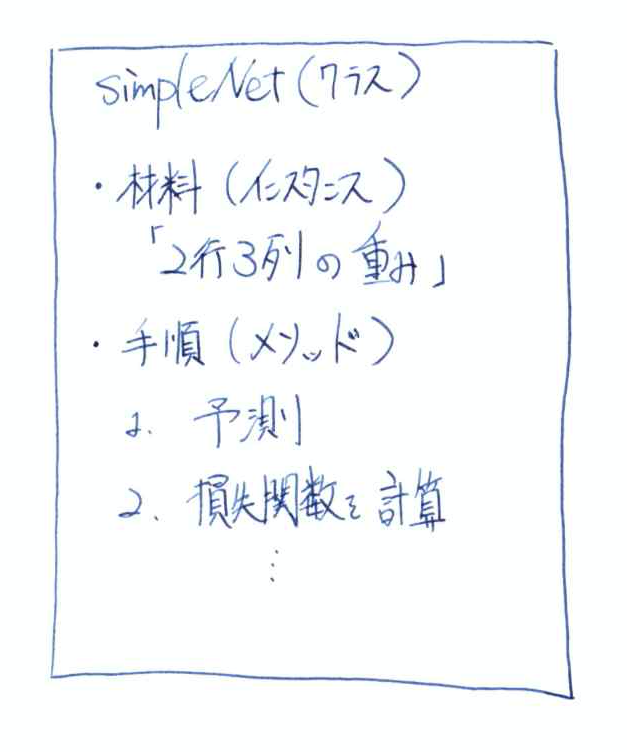 simpleNet(クラス)
・材料(インスタンス)
「2行3列の重み」
・手順(メソッド)
1. 予測
2. 損失関数を計算
⋮